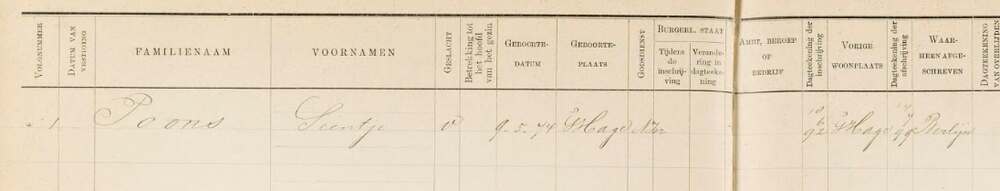 VOLGNUMMER
DATUM VAN VESTIGING
FAMILIENAAM
VOORNAMEN
GESLACHT
Betrekking tot het hoofd van het gezin
GEBOORTE-DATUM
GEBOORTE-PLAATS
GODSDIENST
BURGERL. STAAT
Tijdens de inschrijving
Verandering in dagteekening
AMBT, BEROEP OF BEDRIJF
Dagteekening der inschrijving
VORIGE WOONPLAATS
Dagteekening der afschrijving
WAARHEEN AFGESCHREVEN
DAGTEEKENING VAN OVERLIJDEN
1. Poons Leentje v 9-5-74 s'Hage N.Isr 92 s'Hage 99 Berlijn